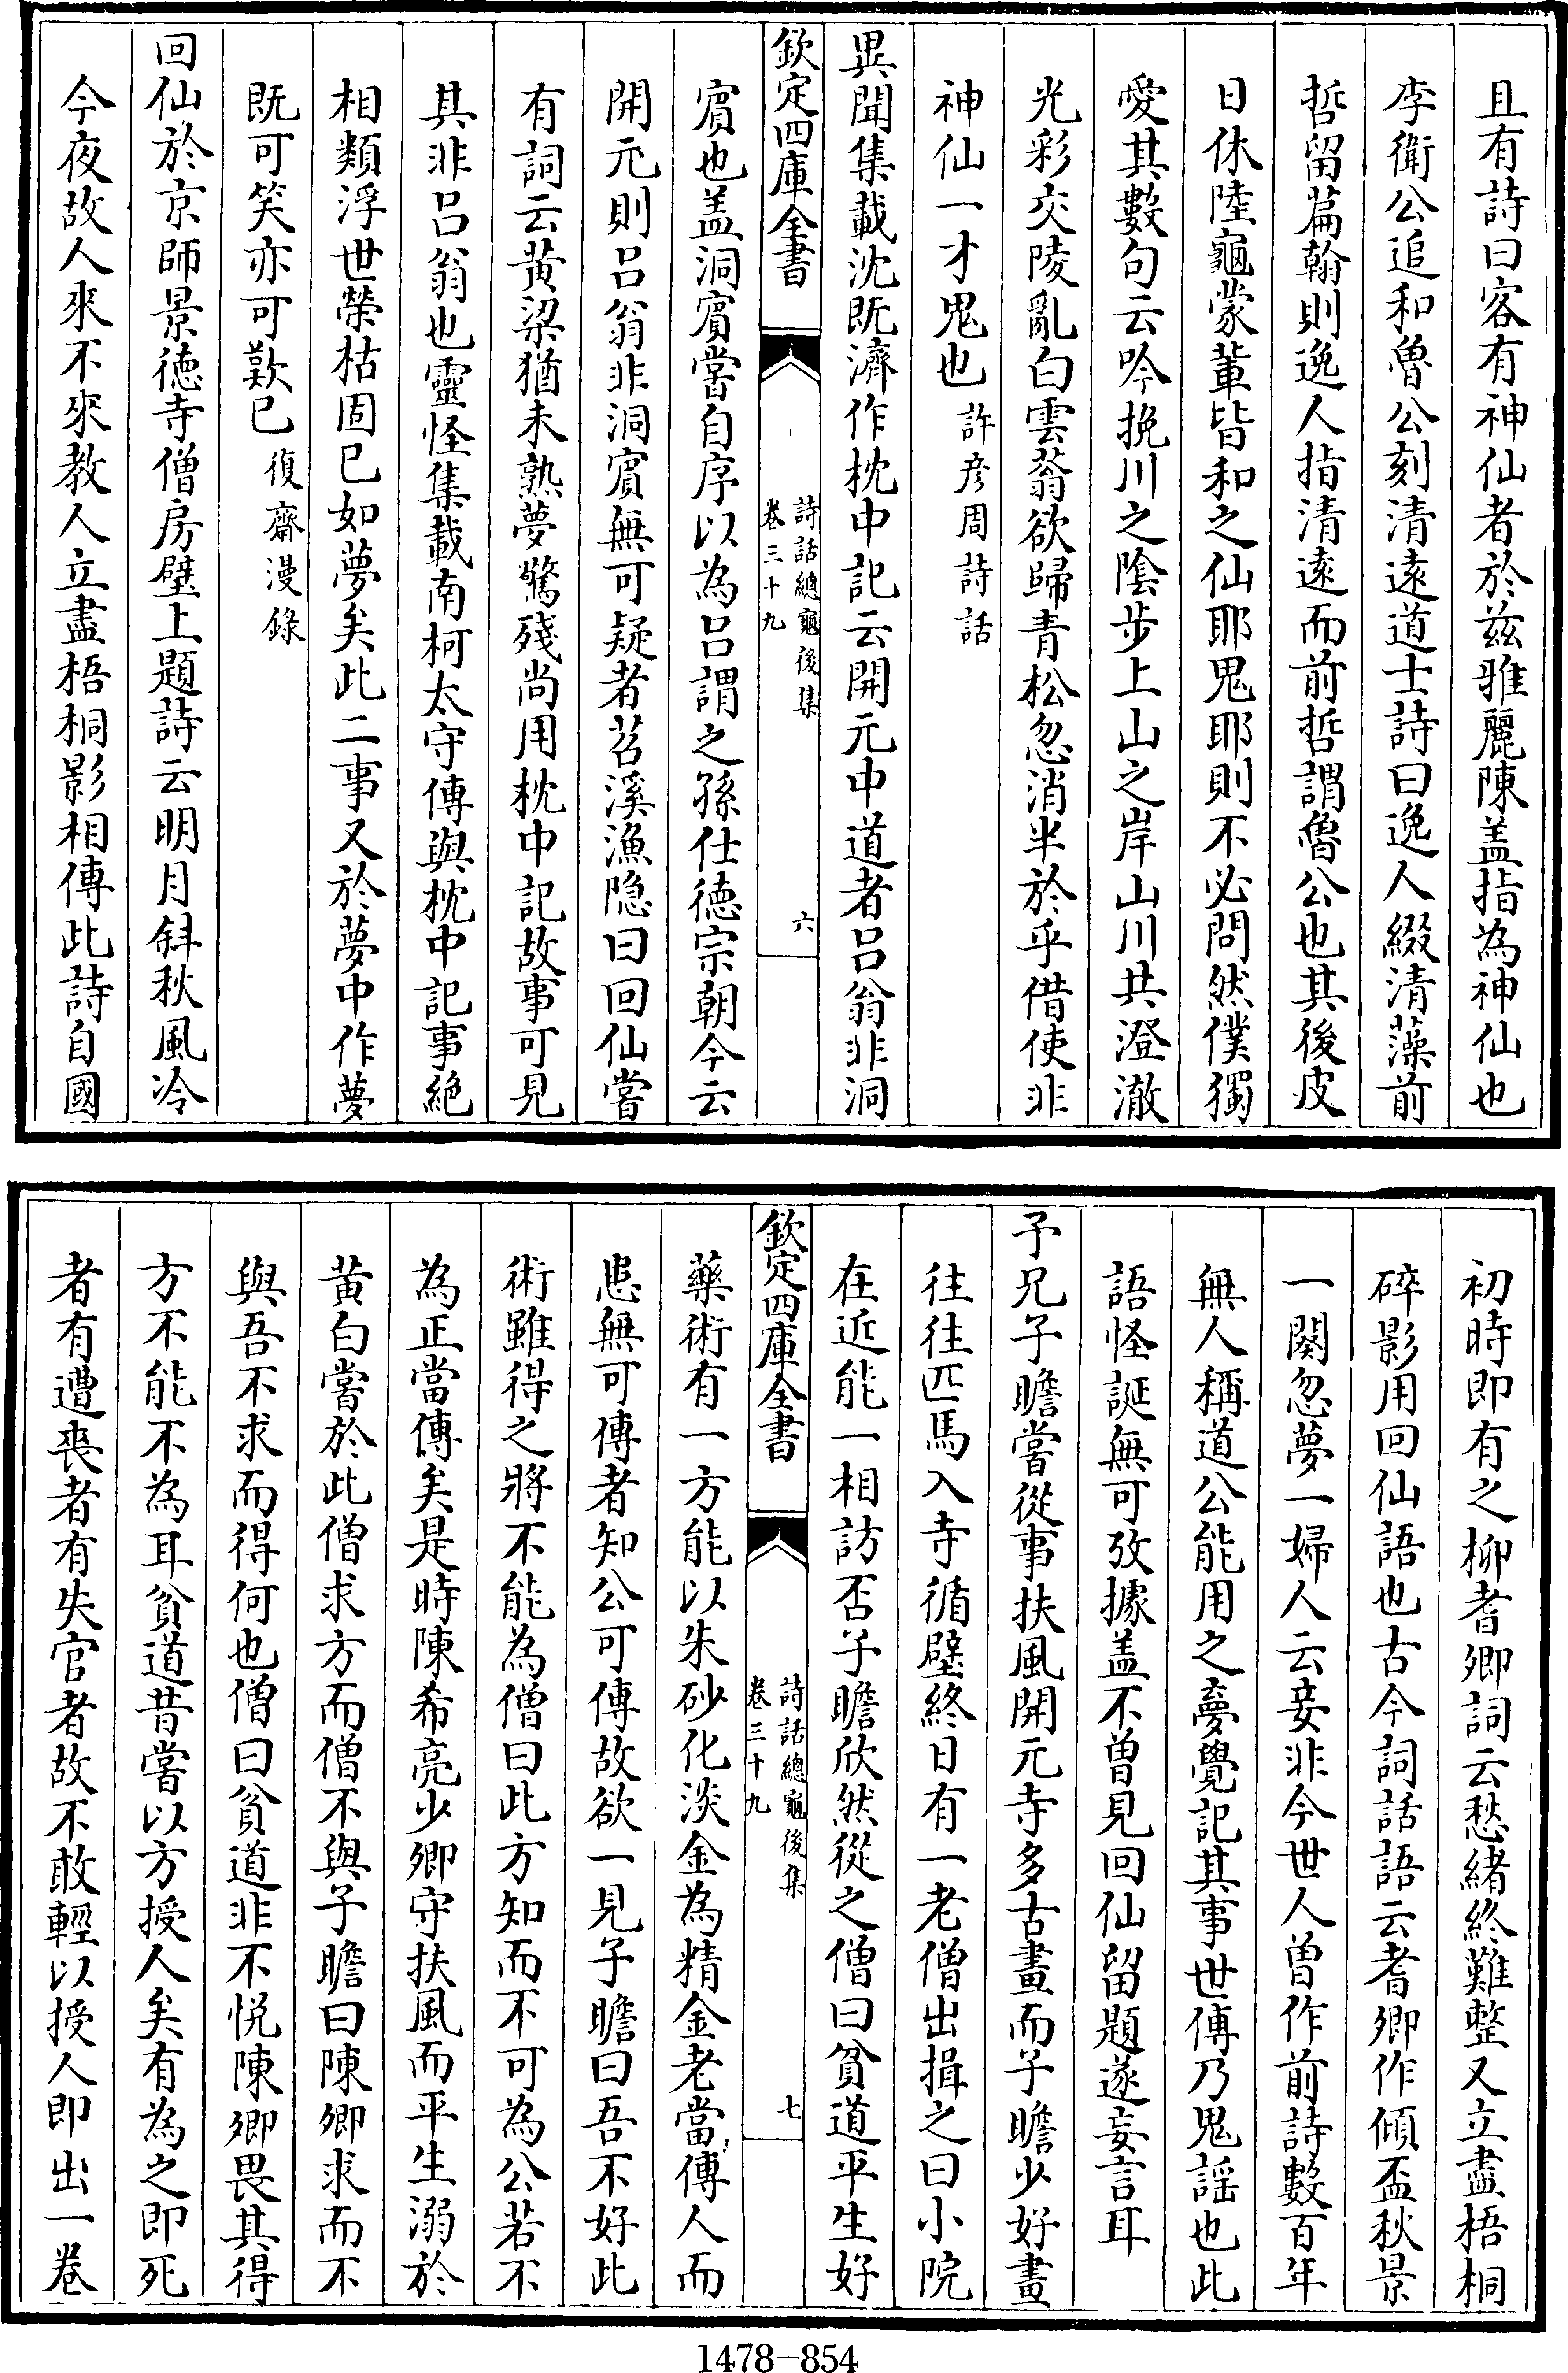 且有詩曰客有神仙者於兹雅麗陳盖指為神仙也
李衛公追和魯公刻清逺道士詩曰逸人綴清藻前
哲留篇翰則逸人指清逺而前哲謂魯公也其後皮
日休陸龜蒙輩皆和之仙耶鬼耶則不必問然僕獨
愛其數句云吟挽川之隂步上山之岸山川共澄澈
光彩交陵亂白雲蓊欲歸青松忽消半於乎借使非
神仙一才鬼也許彦周詩話
異聞集載沈既濟作枕中記云開元中道者吕翁非洞
欽定四庫全書
詩話總龜後集
卷三十九
六
賔也盖洞賔嘗自序以為吕謂之孫仕徳宗朝今云
開元則吕翁非洞賔無可疑者苕溪漁隠曰回仙嘗
有詞云黄粱猶未熟夢驚殘尚用枕中記故事可見
其非吕翁也靈怪集載南柯太守傳與枕中記事絶
相類浮世榮枯固已如夢矣此二事又於夢中作夢
既可笑亦可歎已復齋漫錄
回仙於京師景徳寺僧房壁上題詩云明月斜秋風冷
今夜故人來不來教人立盡梧桐影相傳此詩自國
初時即有之柳耆卿詞云愁緒終難整又立盡梧桐
碎影用回仙語也古今詞話語云耆卿作傾盃秋景
一闋忽夢一婦人云妾非今世人曽作前詩數百年
無人稱道公能用之夢覺記其事世傳乃鬼謡也此
語怪誕無可攷據盖不曽見回仙留題遂妄言耳
予兄子瞻嘗從事扶風開元寺多古畫而子瞻少好畫
往往匹馬入寺循壁終日有一老僧出揖之曰小院
在近能一相訪否子瞻欣然從之僧曰貧道平生好
欽定四庫全書
詩話總龜後集
卷三十九
七
藥術有一方能以朱砂化淡金為精金老當傳人而
患無可傳者知公可傳故欲一見子瞻曰吾不好此
術雖得之將不能為僧曰此方知而不可為公若不
為正當傳矣是時陳希亮少卿守扶風而平生溺於
黄白嘗於此僧求方而僧不與子瞻曰陳卿求而不
與吾不求而得何也僧曰貧道非不恱陳卿畏其得
方不能不為耳貧道昔嘗以方授人矣有為之即死
者有遭喪者有失官者故不敢輕以授人即出一卷
1478-854